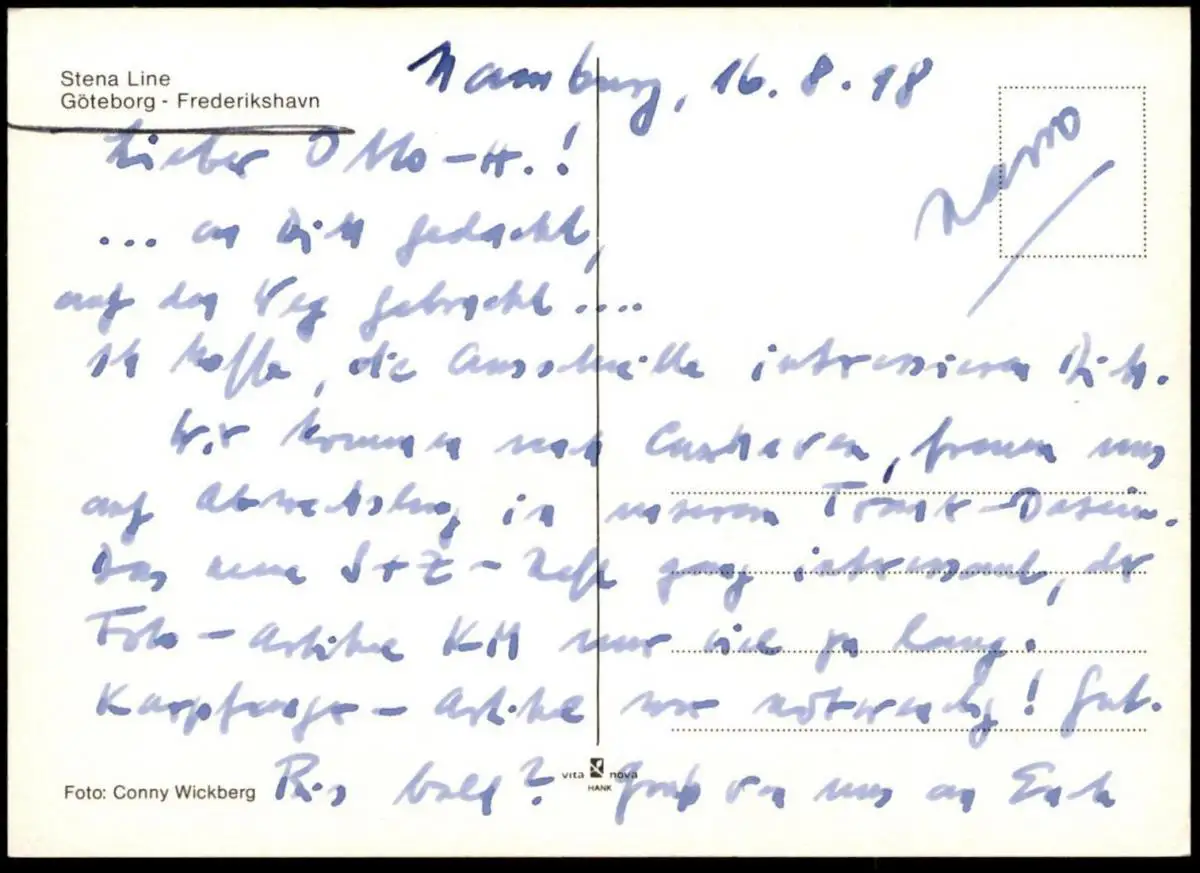 Stena Line
Göteborg - Frederikshavn
Hamburg, 16.8.98
Lieber Otto-H.!
... an Dich gedacht,
auf den Weg gebracht....
Ich hoffe, die Ausschnitte interessieren Dich.
Wir kommen nach Cuxhaven, freuen uns
auf Abwechslung in unserem -Dasein.
Das neue S+Z-Heft ganz interessant, der
Foto-Artikel KH nur viel zu lang.
Karpfanger-Artikel war notwendig! Gut.
Bis bald? Gruß von uns an Euch
vita nova
HANK
Foto: Conny Wickberg